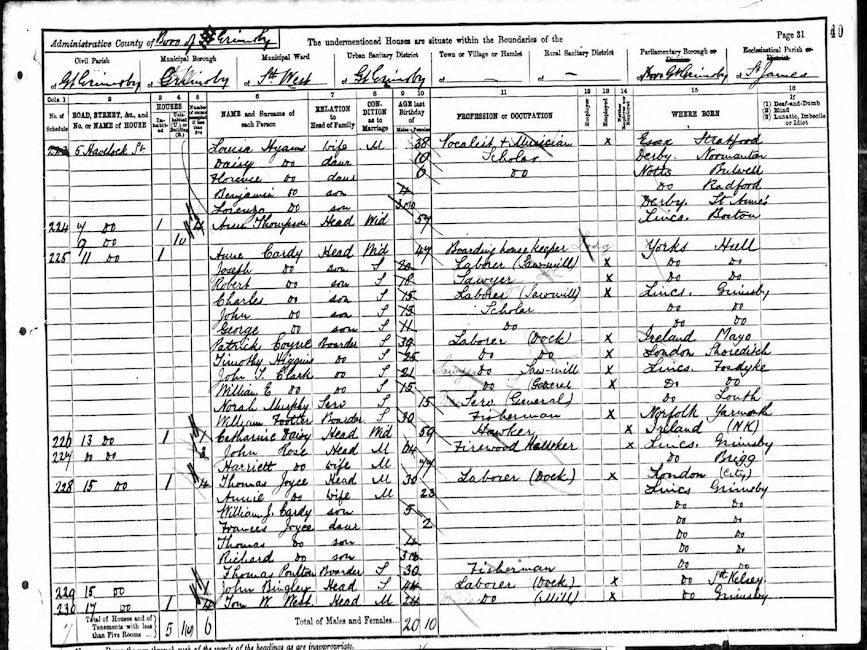 Administrative County of Boro of Gt Grimsby The undermentioned Houses are situate within the Boundaries of the Page 31 40
Civil Parish Municipal Borough Municipal Ward Urban Sanitary District Town or Village or Hamlet Rural Sanitary District Parliamentary Borough or Division Ecclesiastical Parish or District
of Gt Grimsby of Grimsby of Sth West of Gt Grimsby of — of — of Gt Grimsby of St James
Cols 1 2 3 4 5 6 7 8 9 10 11 12 13 14 15 16
No. of Schedule ROAD, STREET, &c., and No. or NAME of HOUSE HOUSES NAME and Surname of each Person RELATION to Head of Family CONDITION as to Marriage AGE last Birthday of Males Females PROFESSION or OCCUPATION Employer Employed WHERE BORN If (1) Deaf-and-Dumb (2) Blind (3) Lunatic, Imbecile or Idiot
5 Havelock St Louisa Hyams Wife M 38 Vocalist & Musician x Essex Stratford
Daisy Do daur 10 Scholar Derby. Normanton
Florence Do daur 6 Do Notts Bulwell
Benjamin Do son 4 Do Radford
Lorenzo Do son Derby. St Anne's
224 7 Do 1 4 Ann Thompson Head Wid 57 Lincs. Boston
9 Do 10
225 11 Do 1 Annie Cardy Head Wid 47 Boarding house keeper Yorks Hull
Joseph Do son S 20 Laborer (Saw-mill) x Do Do
Robert Do son S 18 Sawyer x Do Do
Charles Do son S 15 Laborer (Sawmill) x Lincs. Grimsby
John Do son S 13 Scholar Do Do
George Do son S 11 Do Do Do
Patrick Coyne Boarder S 39 Laborer (Dock) x Ireland Mayo
Timothy Higgins Do S 25 Do Do x London Shoreditch
John T. Clark Do S 21 Do Saw-mill x Lincs. Fosdyke
William E Do Do S 15 Do (General x Do Do
Norah Murphy Serv S 15 Serv. (General) Do Louth
William Footter Boarder S 30 Fisherman x Norfolk Yarmouth
226 13 Do 1 1 Catharine Daisy Head Wid 59 Hawker x Ireland (NK)
227 Do Do 2 John Rose Head M 64 Firewood Hawker x Lincs. Grimsby
Harriett Do Wife M 44 Do Brigg
228 15 Do 1 4 Thomas Joyce Head M 30 Laborer (Dock) x London (City)
Annie Do Wife M 23 Lincs Grimsby
William J. Cardy son 5 Do Do
Frances Joyce daur 2 Do Do
Thomas Do son 4 Do Do
Richard Do son Do Do
Thomas Poulton Boarder S 30 Fisherman Do Do
229 15 Do 1 John Bingley Head S 44 Laborer (Dock) x Do Sth Kelsey
230 17 Do 1 4 Tom W. West Head M 24 Do (Mill) x Do Grimsby
Total of Houses and of Tenements with less than Five Rooms 5 6 Total of Males and Females... 20 10